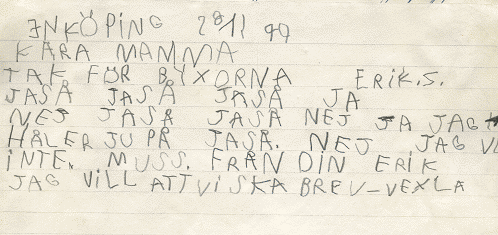 JNKÖPING 28/11 99
KÄRA MAMMA
TAK FÖR BYXORNA ERIK.S.
JASÅ JASÅ JASÅ JA
NEJ JASÅ JASÅ NEJ JA JAG
HÅLER JU PÅ JASÅ. NEJ JAG
INTE. MUSS. FRÅN DIN ERIK
JAG VILL ATT VI SKA BREV-VEXLA